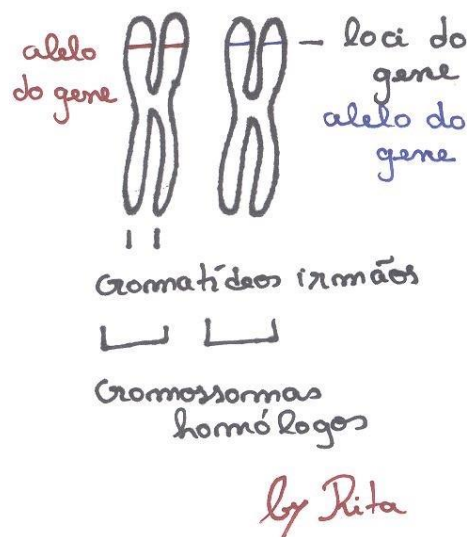 alelo
do gene
— loci do
gene
alelo do
gene
cromatídeos irmãos
cromossomas
homólogos
by Rita